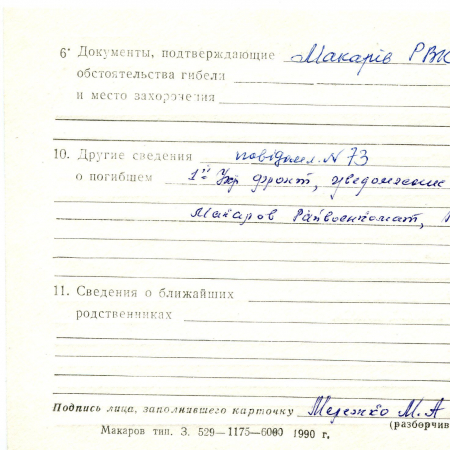 6. Документы, подтверждающие Макарів РВК
обстоятельства гибели
и место захоронения
10. Другие сведения повідомл. N 73
о погибшем 1й Укр фронт, уведомление
Макаров Райвоенкомат,
11. Сведения о ближайших
родственниках
Подпись лица, заполнившего карточку Мережко М. А
(разборчив
Макаров тип. З. 529—1175—6000 1990 г.